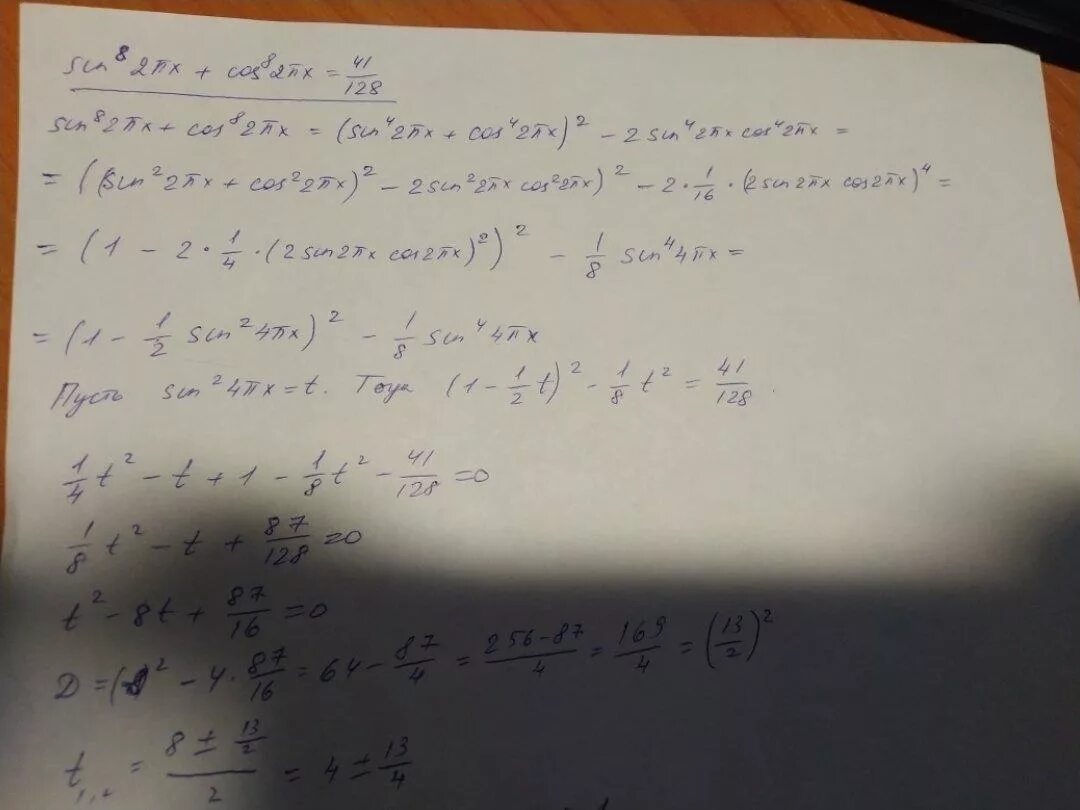 sin⁸ 2πx + cos⁸ 2πx = 41/128
sin⁸2πx + cos⁸2πx = (sin⁴2πx + cos⁴2πx)² − 2sin⁴2πx cos⁴2πx =
= ((sin²2πx + cos²2πx)² − 2sin²2πx cos²2πx)² − 2·1/16·(2sin2πx cos2πx)⁴ =
= (1 − 2·1/4·(2sin2πx cos2πx)²)² − 1/8 sin⁴4πx =
= (1 − 1/2 sin²4πx)² − 1/8 sin⁴4πx
Пусть sin²4πx = t. Тогда (1 − 1/2 t)² − 1/8 t² = 41/128.
1/4 t² − t + 1 − 1/8 t² − 41/128 = 0
1/8 t² − t + 87/128 = 0
t² − 8t + 87/16 = 0
D = ( )² − 4·87/16 = 64 − 87/4 = (256−87)/4 = 169/4 = (13/2)²
t₁,₂ = (8 ± 13/2)/2 = 4 ± 13/4